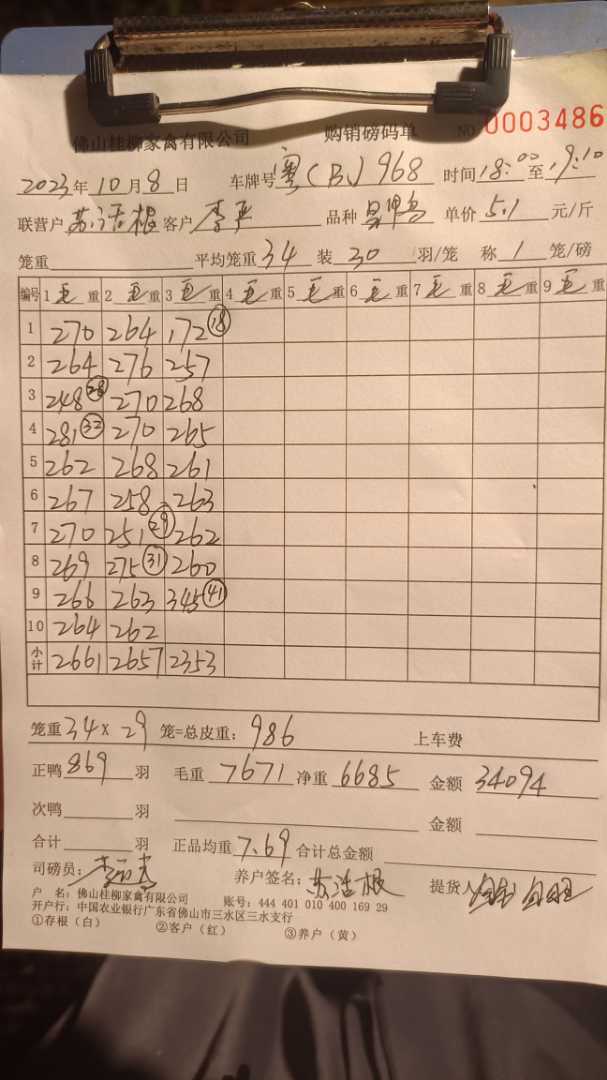 佛山桂柳家禽有限公司 购销磅码单 NO 0003486
2023年10月8日 车牌号 粤(B)968 时间18:00至19:10
联营户 苏浩根 客户 李 品种 鸭 单价5.1元/斤
笼重 平均笼重34 装30羽/笼 称1笼/磅
编号 1毛重 2毛重 3毛重 4毛重 5毛重 6毛重 7毛重 8毛重 9毛重
1 270 264 172 18
2 264 276 257
3 248 28 270 268
4 281 32 270 265
5 262 268 261
6 267 258 263
7 270 251 29 262
8 269 275 31 260
9 266 263 345 41
10 264 262
小计 2661 2657 2353
笼重34×29笼=总皮重:986 上车费
正鸭869羽 毛重7671 净重6685 金额34094
次鸭 羽 金额
合计 羽 正品均重7.69 合计总金额
司磅员: 养户签名:苏浩根 提货人
户 名:佛山桂柳家禽有限公司 账号:444 401 010 400 169 29
开户行:中国农业银行广东省佛山市三水区三水支行
①存根(白) ②客户(红) ③养户(黄)